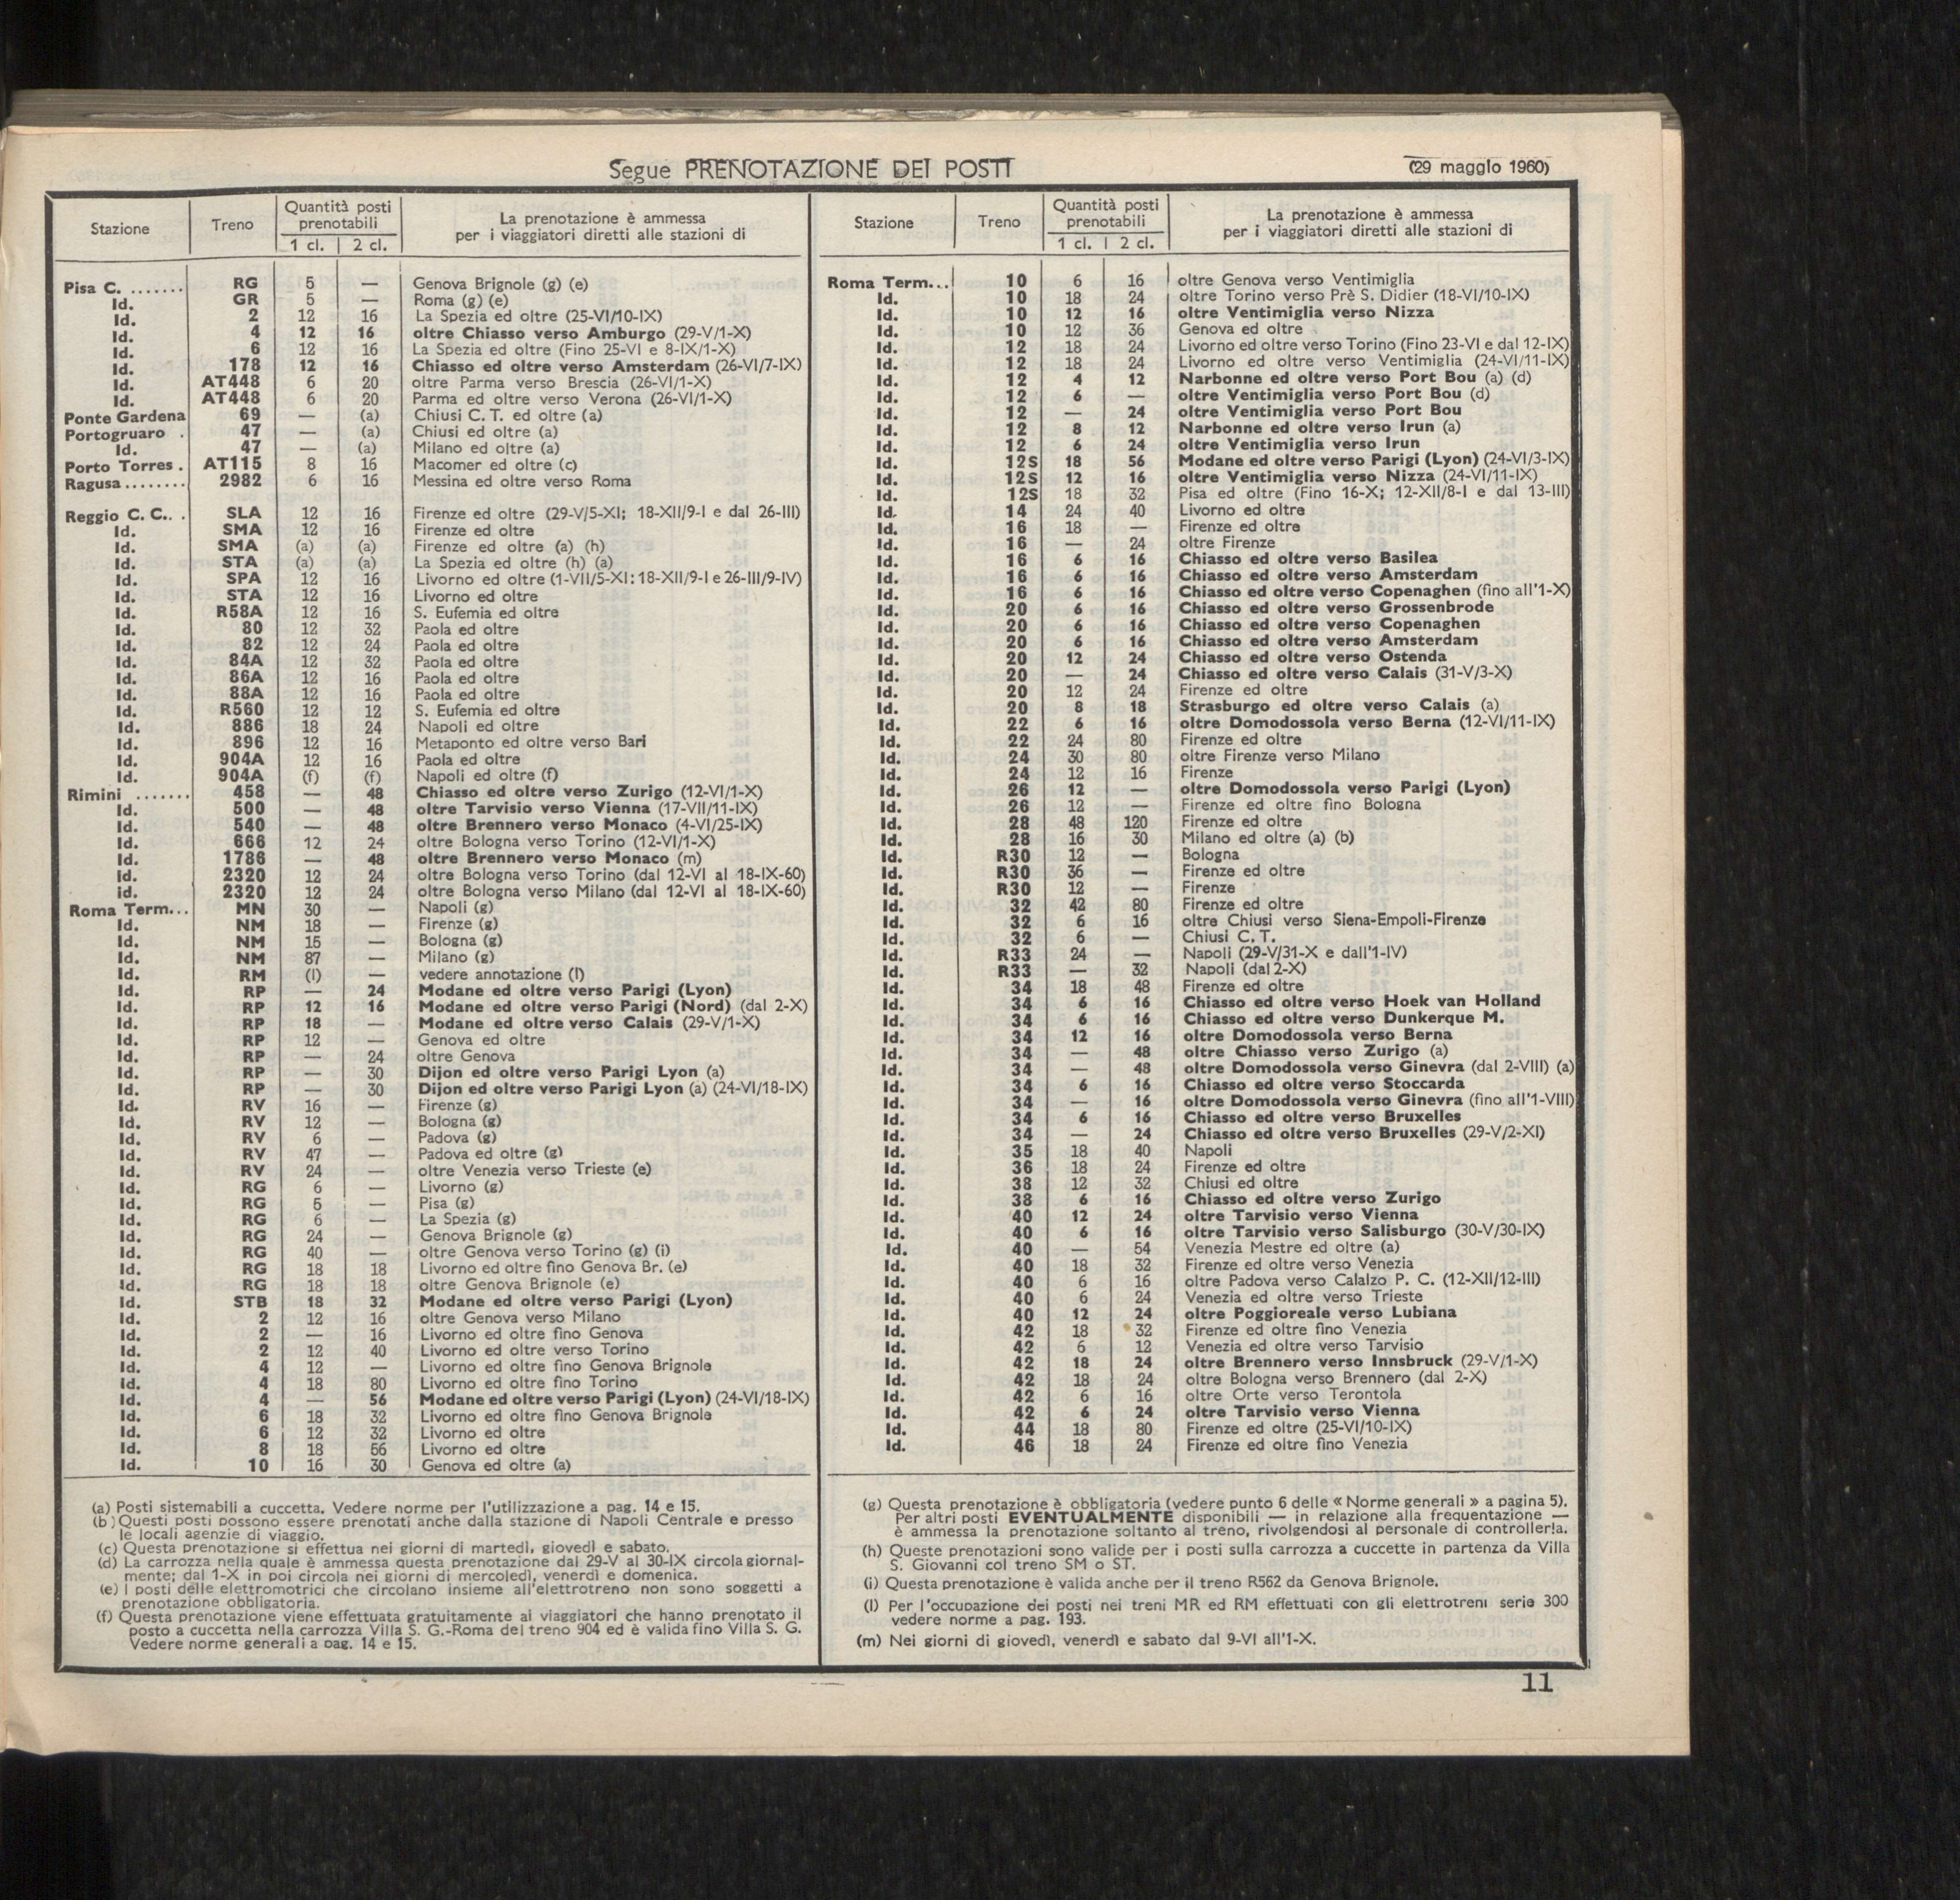 Segue PRENOTAZIONE DEI POSTI
(29 maggio 1960)
Stazione Treno Quantità posti prenotabili 1 cl. 2 cl. La prenotazione è ammessa per i viaggiatori diretti alle stazioni di
Pisa C. ....... RG 5 — Genova Brignole (g) (e)
Id. GR 5 — Roma (g) (e)
Id. 2 12 16 La Spezia ed oltre (25-VI/10-IX)
Id. 4 12 16 oltre Chiasso verso Amburgo (29-V/1-X)
Id. 6 12 16 La Spezia ed oltre (Fino 25-VI e 8-IX/1-X)
Id. 178 12 16 Chiasso ed oltre verso Amsterdam (26-VI/7-IX)
Id. AT448 6 20 oltre Parma verso Brescia (26-VI/1-X)
Id. AT448 6 20 Parma ed oltre verso Verona (26-VI/1-X)
Ponte Gardena 69 — (a) Chiusi C. T. ed oltre (a)
Portogruaro . 47 — (a) Chiusi ed oltre (a)
Id. 47 — (a) Milano ed oltre (a)
Porto Torres . AT115 8 16 Macomer ed oltre (c)
Ragusa ........ 2982 6 16 Messina ed oltre verso Roma
Reggio C. C.. . SLA 12 16 Firenze ed oltre (29-V/5-XI; 18-XII/9-I e dal 26-III)
Id. SMA 12 16 Firenze ed oltre
Id. SMA (a) (a) Firenze ed oltre (a) (h)
Id. STA (a) (a) La Spezia ed oltre (h) (a)
Id. SPA 12 16 Livorno ed oltre (1-VII/5-XI; 18-XII/9-I e 26-III/9-IV)
Id. STA 12 16 Livorno ed oltre
Id. R58A 12 16 S. Eufemia ed oltre
Id. 80 12 32 Paola ed oltre
Id. 82 12 24 Paola ed oltre
Id. 84A 12 32 Paola ed oltre
Id. 86A 12 16 Paola ed oltre
Id. 88A 12 16 Paola ed oltre
Id. R560 12 12 S. Eufemia ed oltre
Id. 886 18 24 Napoli ed oltre
Id. 896 12 16 Metaponto ed oltre verso Bari
Id. 904A 12 16 Paola ed oltre
Id. 904A (f) (f) Napoli ed oltre (f)
Rimini ....... 458 — 48 Chiasso ed oltre verso Zurigo (12-VI/1-X)
Id. 500 — 48 oltre Tarvisio verso Vienna (17-VII/11-IX)
Id. 540 — 48 oltre Brennero verso Monaco (4-VI/25-IX)
Id. 666 12 24 oltre Bologna verso Torino (12-VI/1-X)
Id. 1786 — 48 oltre Brennero verso Monaco (m)
Id. 2320 12 24 oltre Bologna verso Torino (dal 12-VI al 18-IX-60)
id. 2320 12 24 oltre Bologna verso Milano (dal 12-VI al 18-IX-60)
Roma Term... MN 30 — Napoli (g)
Id. NM 18 — Firenze (g)
Id. NM 15 — Bologna (g)
Id. NM 87 — Milano (g)
Id. RM (l) — vedere annotazione (l)
Id. RP — 24 Modane ed oltre verso Parigi (Lyon)
Id. RP 12 16 Modane ed oltre verso Parigi (Nord) (dal 2-X)
Id. RP 18 — Modane ed oltre verso Calais (29-V/1-X)
Id. RP 12 — Genova ed oltre
Id. RP — 24 oltre Genova
Id. RP — 30 Dijon ed oltre verso Parigi Lyon (a)
Id. RP — 30 Dijon ed oltre verso Parigi Lyon (a) (24-VI/18-IX)
Id. RV 16 — Firenze (g)
Id. RV 12 — Bologna (g)
Id. RV 6 — Padova (g)
Id. RV 47 — Padova ed oltre (g)
Id. RV 24 — oltre Venezia verso Trieste (e)
Id. RG 6 — Livorno (g)
Id. RG 5 — Pisa (g)
Id. RG 6 — La Spezia (g)
Id. RG 24 — Genova Brignole (g)
Id. RG 40 — oltre Genova verso Torino (g) (i)
Id. RG 18 18 Livorno ed oltre fino Genova Br. (e)
Id. RG 18 18 oltre Genova Brignole (e)
Id. STB 18 32 Modane ed oltre verso Parigi (Lyon)
Id. 2 12 16 oltre Genova verso Milano
Id. 2 — 16 Livorno ed oltre fino Genova
Id. 2 12 40 Livorno ed oltre verso Torino
Id. 4 12 — Livorno ed oltre fino Genova Brignole
Id. 4 18 80 Livorno ed oltre fino Torino
Id. 4 — 56 Modane ed oltre verso Parigi (Lyon) (24-VI/18-IX)
Id. 6 18 32 Livorno ed oltre fino Genova Brignole
Id. 6 12 32 Livorno ed oltre
Id. 8 18 56 Livorno ed oltre
Id. 10 16 30 Genova ed oltre (a)
(a) Posti sistemabili a cuccetta. Vedere norme per l'utilizzazione a pag. 14 e 15.
(b) Questi posti possono essere prenotati anche dalla stazione di Napoli Centrale e presso
le locali agenzie di viaggio.
(c) Questa prenotazione si effettua nei giorni di martedì, giovedì e sabato.
(d) La carrozza nella quale è ammessa questa prenotazione dal 29-V al 30-IX circola giornal-
mente; dal 1-X in poi circola nei giorni di mercoledì, venerdì e domenica.
(e) I posti delle elettromotrici che circolano insieme all'elettrotreno non sono soggetti a
prenotazione obbligatoria.
(f) Questa prenotazione viene effettuata gratuitamente ai viaggiatori che hanno prenotato il
posto a cuccetta nella carrozza Villa S. G.-Roma del treno 904 ed è valida fino Villa S. G.
Vedere norme generali a pag. 14 e 15.
Stazione Treno Quantità posti prenotabili 1 cl. 2 cl. La prenotazione è ammessa per i viaggiatori diretti alle stazioni di
Roma Term... 10 6 16 oltre Genova verso Ventimiglia
Id. 10 18 24 oltre Torino verso Prè S. Didier (18-VI/10-IX)
Id. 10 12 16 oltre Ventimiglia verso Nizza
Id. 10 12 36 Genova ed oltre
Id. 12 18 24 Livorno ed oltre verso Torino (Fino 23-VI e dal 12-IX)
Id. 12 18 24 Livorno ed oltre verso Ventimiglia (24-VI/11-IX)
Id. 12 4 12 Narbonne ed oltre verso Port Bou (a) (d)
Id. 12 6 — oltre Ventimiglia verso Port Bou (d)
Id. 12 — 24 oltre Ventimiglia verso Port Bou
Id. 12 8 12 Narbonne ed oltre verso Irun (a)
Id. 12 6 24 oltre Ventimiglia verso Irun
Id. 12S 18 56 Modane ed oltre verso Parigi (Lyon) (24-VI/3-IX)
Id. 12S 12 16 oltre Ventimiglia verso Nizza (24-VI/11-IX)
Id. 12S 18 32 Pisa ed oltre (Fino 16-X; 12-XII/8-I e dal 13-III)
Id. 14 24 40 Livorno ed oltre
Id. 16 18 — Firenze ed oltre
Id. 16 — 24 oltre Firenze
Id. 16 6 16 Chiasso ed oltre verso Basilea
Id. 16 6 16 Chiasso ed oltre verso Amsterdam
Id. 16 6 16 Chiasso ed oltre verso Copenaghen (fino all'1-X)
Id. 20 6 16 Chiasso ed oltre verso Grossenbrode
Id. 20 6 16 Chiasso ed oltre verso Copenaghen
Id. 20 6 16 Chiasso ed oltre verso Amsterdam
Id. 20 12 24 Chiasso ed oltre verso Ostenda
Id. 20 — 24 Chiasso ed oltre verso Calais (31-V/3-X)
Id. 20 12 24 Firenze ed oltre
Id. 20 8 18 Strasburgo ed oltre verso Calais (a)
Id. 22 6 16 oltre Domodossola verso Berna (12-VI/11-IX)
Id. 22 24 80 Firenze ed oltre
Id. 24 30 80 oltre Firenze verso Milano
Id. 24 12 16 Firenze
Id. 26 12 — oltre Domodossola verso Parigi (Lyon)
Id. 26 12 — Firenze ed oltre fino Bologna
Id. 28 48 120 Firenze ed oltre
Id. 28 16 30 Milano ed oltre (a) (b)
Id. R30 12 — Bologna
Id. R30 36 — Firenze ed oltre
Id. R30 12 — Firenze
Id. 32 42 80 Firenze ed oltre
Id. 32 6 16 oltre Chiusi verso Siena-Empoli-Firenze
Id. 32 6 — Chiusi C. T.
Id. R33 24 — Napoli (29-V/31-X e dall'1-IV)
Id. R33 — 32 Napoli (dal 2-X)
Id. 34 18 48 Firenze ed oltre
Id. 34 6 16 Chiasso ed oltre verso Hoek van Holland
Id. 34 6 16 Chiasso ed oltre verso Dunkerque M.
Id. 34 12 16 oltre Domodossola verso Berna
Id. 34 — 48 oltre Chiasso verso Zurigo (a)
Id. 34 — 48 oltre Domodossola verso Ginevra (dal 2-VIII) (a)
Id. 34 6 16 Chiasso ed oltre verso Stoccarda
Id. 34 — 16 oltre Domodossola verso Ginevra (fino all'1-VIII)
Id. 34 6 16 Chiasso ed oltre verso Bruxelles
Id. 34 — 24 Chiasso ed oltre verso Bruxelles (29-V/2-XI)
Id. 35 18 40 Napoli
Id. 36 18 24 Firenze ed oltre
Id. 38 12 32 Chiusi ed oltre
Id. 38 6 16 Chiasso ed oltre verso Zurigo
Id. 40 12 24 oltre Tarvisio verso Vienna
Id. 40 6 16 oltre Tarvisio verso Salisburgo (30-V/30-IX)
Id. 40 — 54 Venezia Mestre ed oltre (a)
Id. 40 18 32 Firenze ed oltre verso Venezia
Id. 40 6 16 oltre Padova verso Calalzo P. C. (12-XII/12-III)
Id. 40 6 24 Venezia ed oltre verso Trieste
Id. 40 12 24 oltre Poggioreale verso Lubiana
Id. 42 18 32 Firenze ed oltre fino Venezia
Id. 42 6 12 Venezia ed oltre verso Tarvisio
Id. 42 18 24 oltre Brennero verso Innsbruck (29-V/1-X)
Id. 42 18 24 oltre Bologna verso Brennero (dal 2-X)
Id. 42 6 16 oltre Orte verso Terontola
Id. 42 6 24 oltre Tarvisio verso Vienna
Id. 44 18 80 Firenze ed oltre (25-VI/10-IX)
Id. 46 18 24 Firenze ed oltre fino Venezia
(g) Questa prenotazione è obbligatoria (vedere punto 6 delle « Norme generali » a pagina 5).
Per altri posti EVENTUALMENTE disponibili — in relazione alla frequentazione —
è ammessa la prenotazione soltanto al treno, rivolgendosi al personale di controlleria.
(h) Queste prenotazioni sono valide per i posti sulla carrozza a cuccette in partenza da Villa
S. Giovanni col treno SM o ST.
(i) Questa prenotazione è valida anche per il treno R562 da Genova Brignole.
(l) Per l'occupazione dei posti nei treni MR ed RM effettuati con gli elettrotreni serie 300
vedere norme a pag. 193.
(m) Nei giorni di giovedì, venerdì e sabato dal 9-VI all'1-X.
11